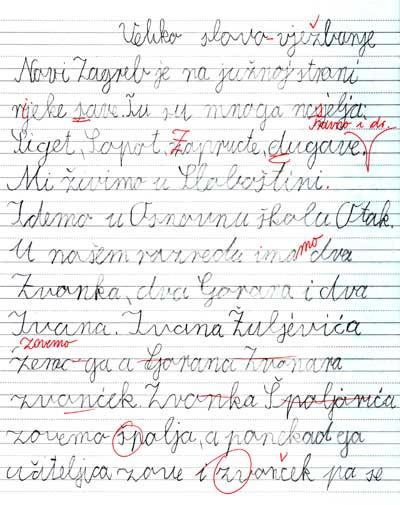 Veliko slovo-vježbanje
Novi Zagreb je na južnoj strani
rijeke save. Tu su mnoga naselja:
Savno i dr.
Siget, Sopot, Zapruđe, dugave.
Mi živimo u Sloboštini.
Idemo u Osnovnu školu Otok.
U našem razredu imamo dva
Zvonka, dva Gorana i dva
Ivana. Ivana Žuljevića
zovemo
ga a Gorana Zvonara
zvonček. Zvonka Špoljarića
zovemo špolja, a ponekad ga
učiteljica zove i zvonček pa se